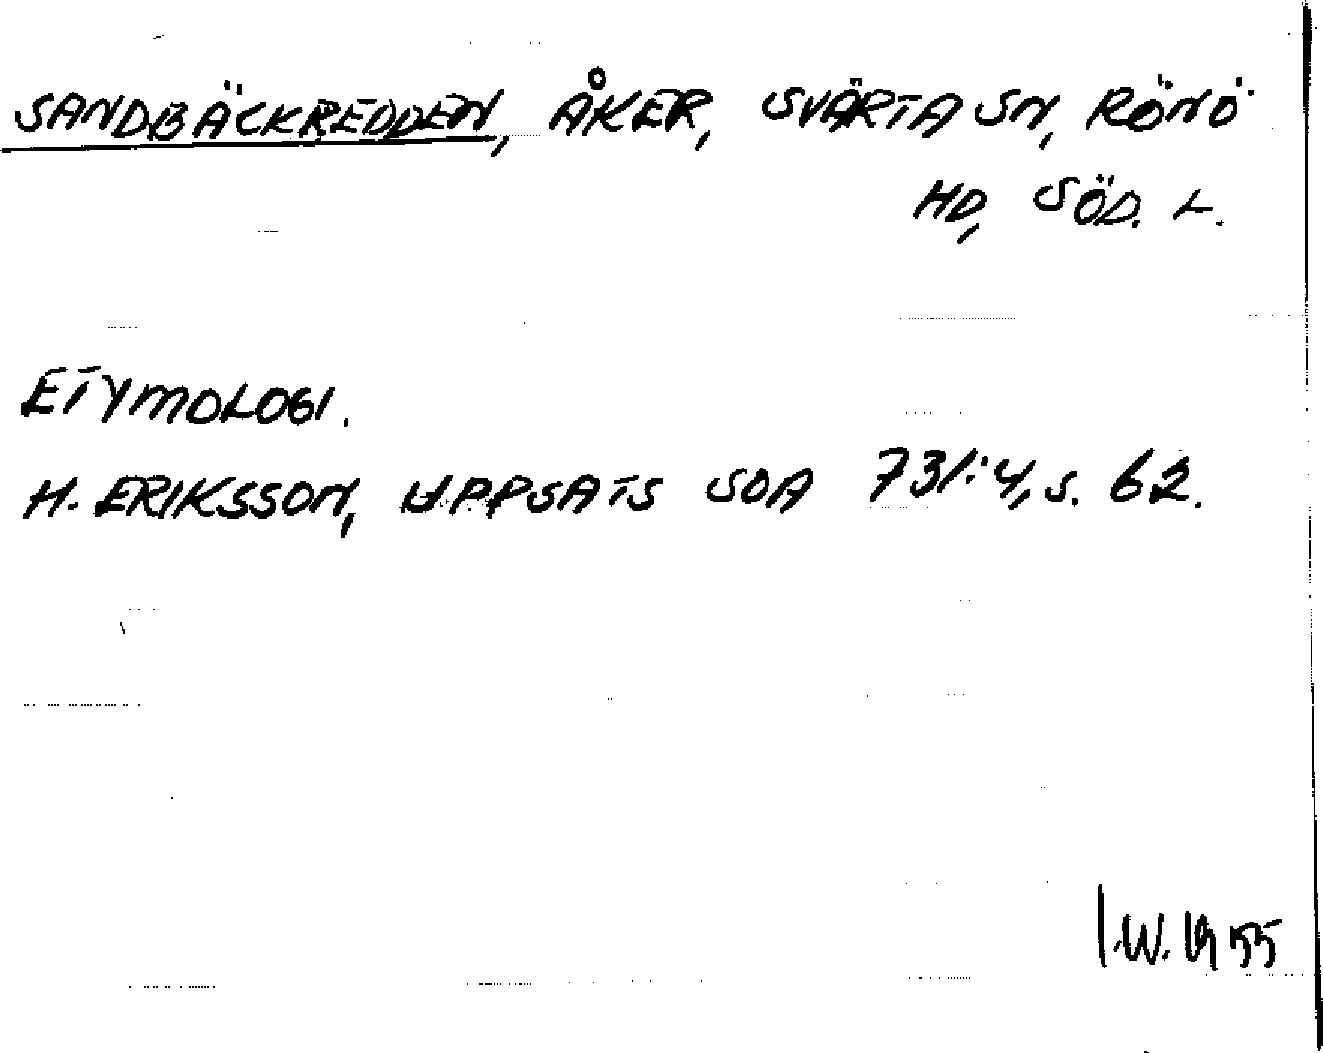 SANDBÄCKREDDEN, ÅKER, SVÄRTA SN, RÖNÖ
HD, SÖD. L.
ETYMOLOGI.
H. ERIKSSON, UPPSATS SOA 731:4, s. 62.
I.W. 1955